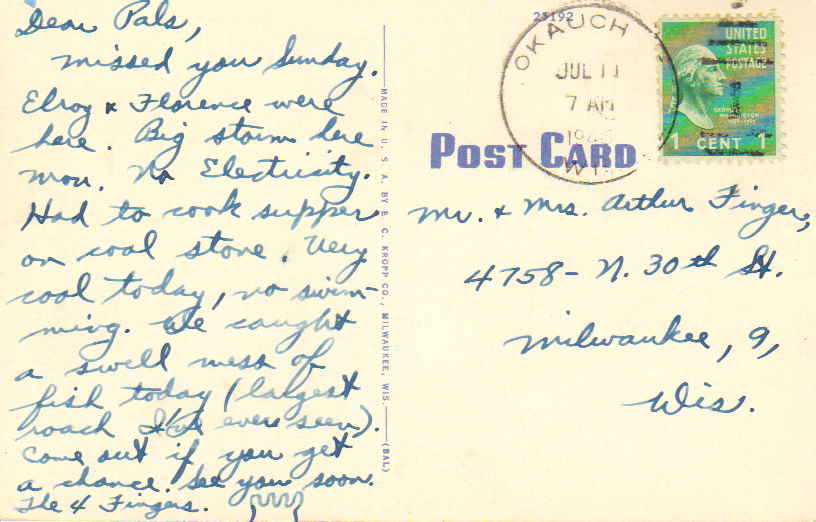 Dear Pals,
missed you Sunday.
Elroy & Florence were
here. Big storm here
mon. No Electricity.
Had to cook supper
on coal stove. Very
cool today, no swim-
ming. We caught
a swell mess of
fish today (largest
roach I've ever seen).
Come out if you get
a chance. See you soon.
The 4 Fingers.
MADE IN U. S. A. BY E. C. KROPP CO., MILWAUKEE, WIS.
(BAL)
25192
OKAUCH
JUL 11
7 AM
WIS.
UNITED
STATES
POSTAGE
1 CENT 1
POST CARD
Mr. & Mrs. Arthur Finger,
4758 - N. 30th St.
Milwaukee, 9,
Wis.